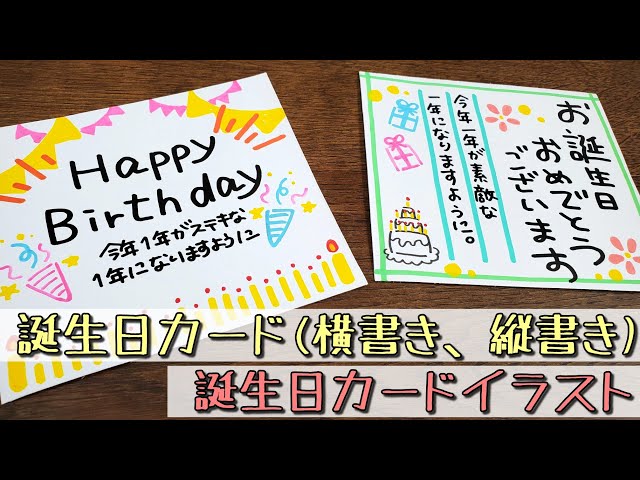 Happy
Birthday
今年1年がステキな
1年になりますように
お誕生日
おめでとう
ございます
今年一年が素敵な
一年になりますように。
誕生日カード(横書き、縦書き)
誕生日カードイラスト